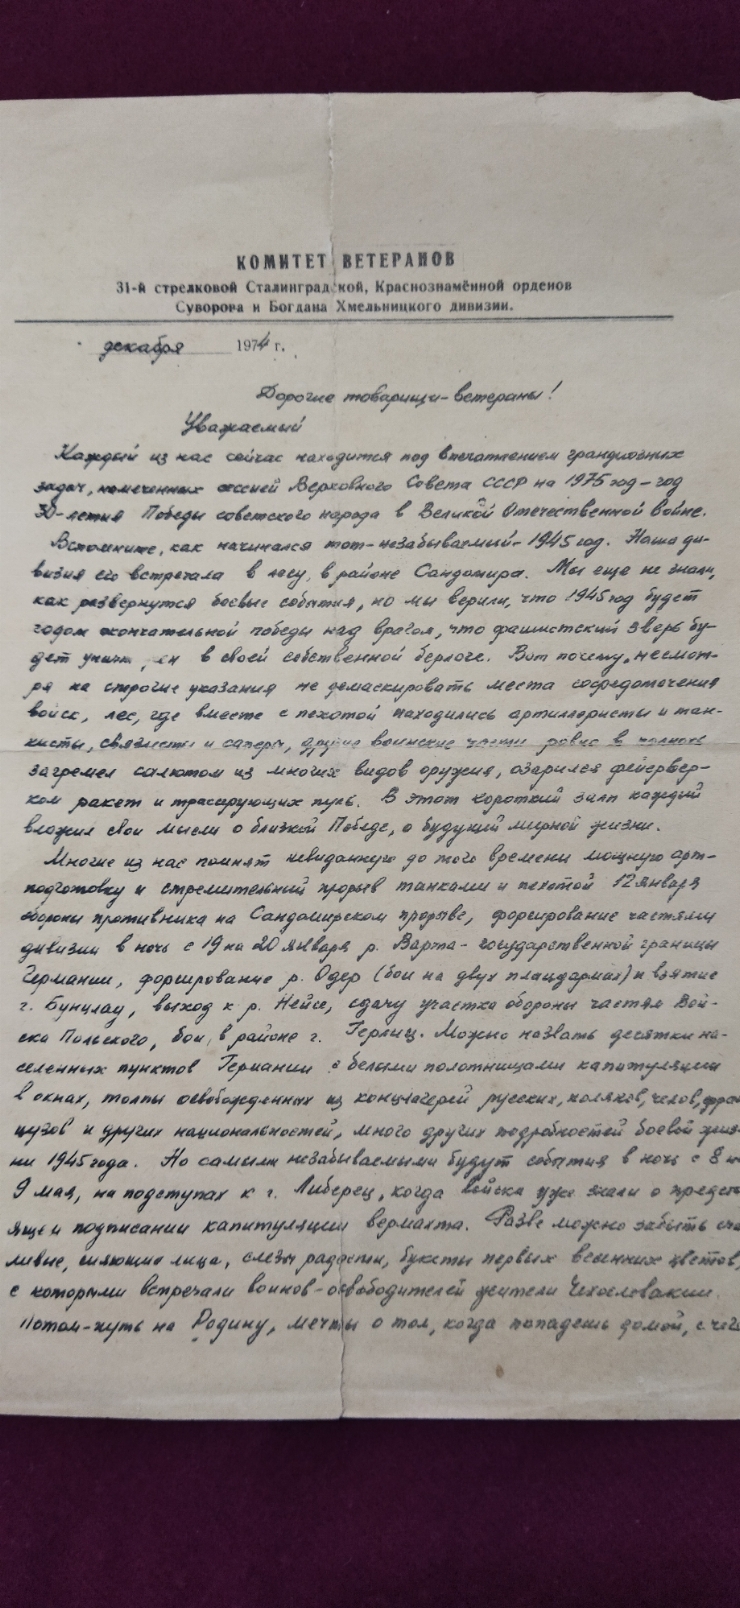 КОМИТЕТ ВЕТЕРАНОВ
31-й стрелковой Сталинградской, Краснознамённой орденов
Суворова и Богдана Хмельницкого дивизии.
декабря 1974 г.
Дорогие товарищи-ветераны!
Уважаемый
Каждый из нас сейчас находится под впечатлением грандиозных
задач, намеченных сессией Верховного Совета СССР на 1975 год-год
30-летия Победы советского народа в Великой Отечественной войне.
Вспомните, как начинался тот-незабываемый-1945 год. Наша ди-
визия его встречала в лесу, в районе Сандомира. Мы еще не знали,
как развернутся боевые события, но мы верили, что 1945 год будет
годом окончательной победы над врагом, что фашистский зверь бу-
дет в своей собственной берлоге. Вот почему, несмот-
ря на строгие указания не демаскировать места сосредоточения
войск, лес, где вместе с пехотой находились артиллеристы и тан-
кисты, связисты и саперы, другие воинские части ровно в полночь
загремел салютом из многих видов оружия, озарился фейервер-
ком ракет и трассирующих пуль. В этот короткий залп каждый
вложил свои мысли о близкой Победе, о будущей мирной жизни.
Многие из нас помнят невиданную до того времени мощную арт-
подготовку и стремительный прорыв танками и пехотой 12 января
обороны противника на Сандомирском прорыве, форсирование частями
дивизии в ночь с 19 на 20 января р. Варта-государственной границы
Германии, форсирование р. Одер (бои на двух плацдармах) и взятие
г. Бунцлау, выход к р. Нейсе, сдачу участка обороны частям Вой-
ска Польского, бои, в районе г. Герлиц. Можно назвать десятки на-
селенных пунктов Германии с белыми полотнищами капитуляции
в окнах, толпы освобожденных из концлагерей русских, поляков, чехов, фран
цузов и других национальностей, много других подробностей боевой жиз-
ни 1945 года. Но самыми незабываемыми будут события в ночь с 8 на
9 мая, на подступах к г. Либерец, когда войска уже знали о предсто
ящем подписании капитуляции вермахта. Разве можно забыть сча
ливые, сияющие лица, слезы радости, букеты первых весенних цветов,
с которыми встречали воинов-освободителей жители Чехословакии.
Потом-путь на Родину, мечты о том, когда попадешь домой, с чего